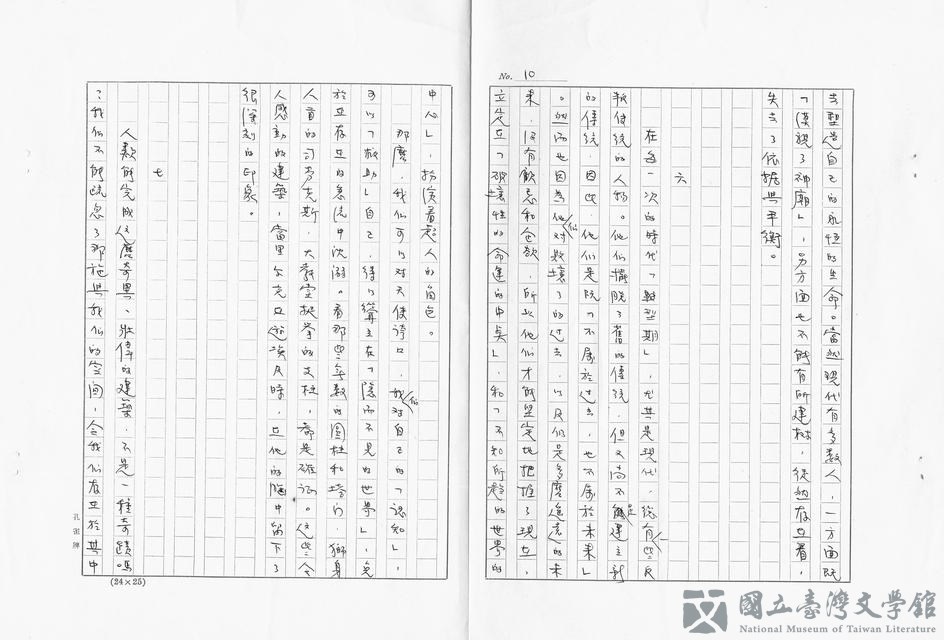 No. 10
去塑造自己的永恒的生命。當然現代有多數人，一方面既
「漠視了神廟」，另方面也不能有所建樹，徒然存在着，
失去了依据與平衡。
六
在每一次的時代「轉型期」，尤其是現代，總有些反
叛傳統的人物。他們擺脫了舊的傳統，但又尚不足建立新
的傳統，因此，他們是既「不屬於過去，也不屬於未來」
。然而也因為他們對敗壞了的過去，以及仍是多麼遙遠的未
來，没有歉忌和企欲，所以他們才能堅定地把握了現在，
立足在「破壞性的命運的中央」，和「不知所趨的世界的
中心」，扮演着超人的角色。
那麼，我們可以對天使誇口，我們對自己的「認知」，
可以「救助」自己，得以矗立在「隱而不見的世界」，免
於在存在的急流中沈溺。看那些無數的圓柱和塔門，獅身
人首的司芬克斯，大教堂拱拳的支柱，都是確証。這些令
人感動的建築，當里爾克在遊埃及時，在他的腦中留下了
很深刻的印象。
七
人類所完成這麼奇異、壯偉的建築，不是一種奇蹟嗎
？我們不能疏忽了那施與我們的空間，令我們存在於其中
孔雀牌
(24×25)
國立臺灣文學館
National Museum of Taiwan Literature